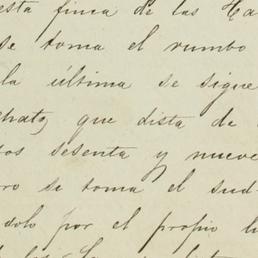 esta finca de las Ha
se toma el rumbo
la última se sigue
que dista de
os sesenta y nueve
ro se toma el sud
dolo por el propio